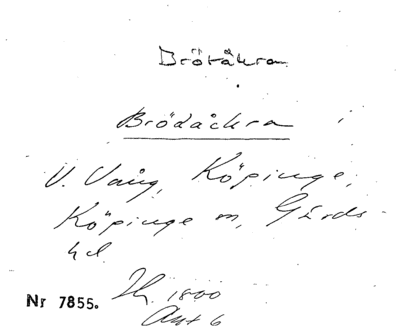 Brötåkra
Brödåckra
V. Vång, Köpinge,
Köpinge sn, Gärds
hd.
Nr 7855.
1800
Akt 6